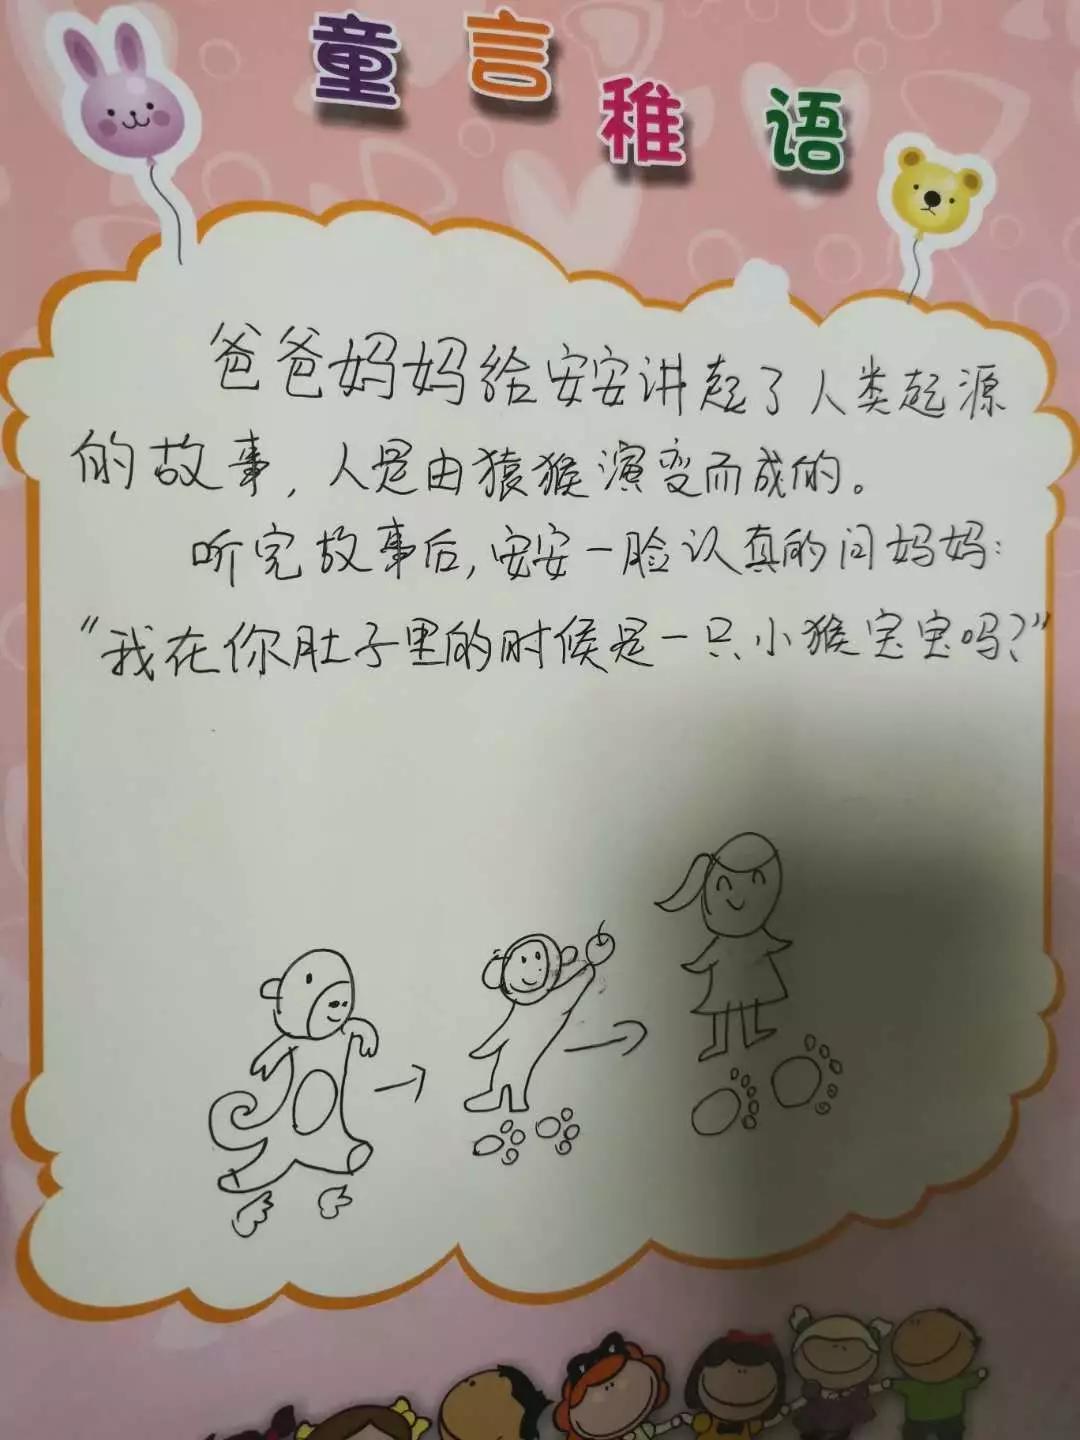 童言稚语
爸爸妈妈给安安讲起了人类起源
的故事，人是由猿猴演变而成的。
听完故事后，安安一脸认真的问妈妈：
“我在你肚子里的时候是一只小猴宝宝吗？”